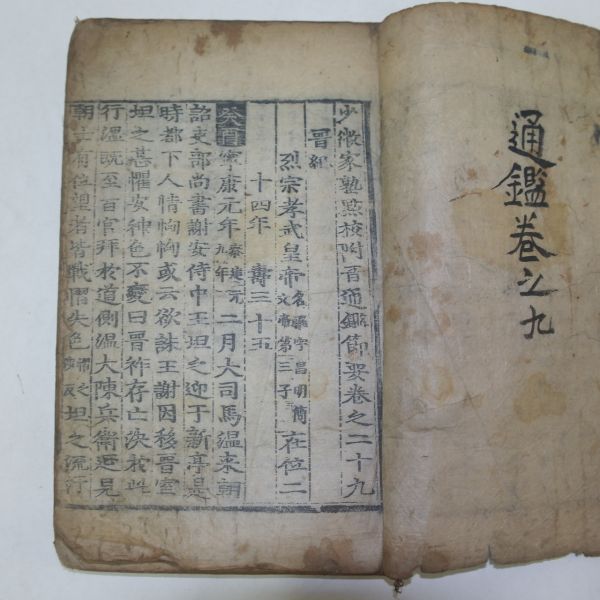 通鑑卷之九
少微家塾點校附音通鑑節要卷之二十九
晉紀
烈宗孝武皇帝名曜字昌明簡文帝第三子在位二
十四年 壽三十五
癸酉寧康元年秦建元九年二月大司馬溫來朝
詔吏部尚書謝安侍中王坦之迎于新亭是
時都下人情恟恟或云欲誅王謝因移晉室
坦之甚懼安神色不變曰晉祚存亡決於此
行溫旣至百官拜於道側溫大陳兵衛延見
朝士有位望者皆戰慴失色坦之流汗